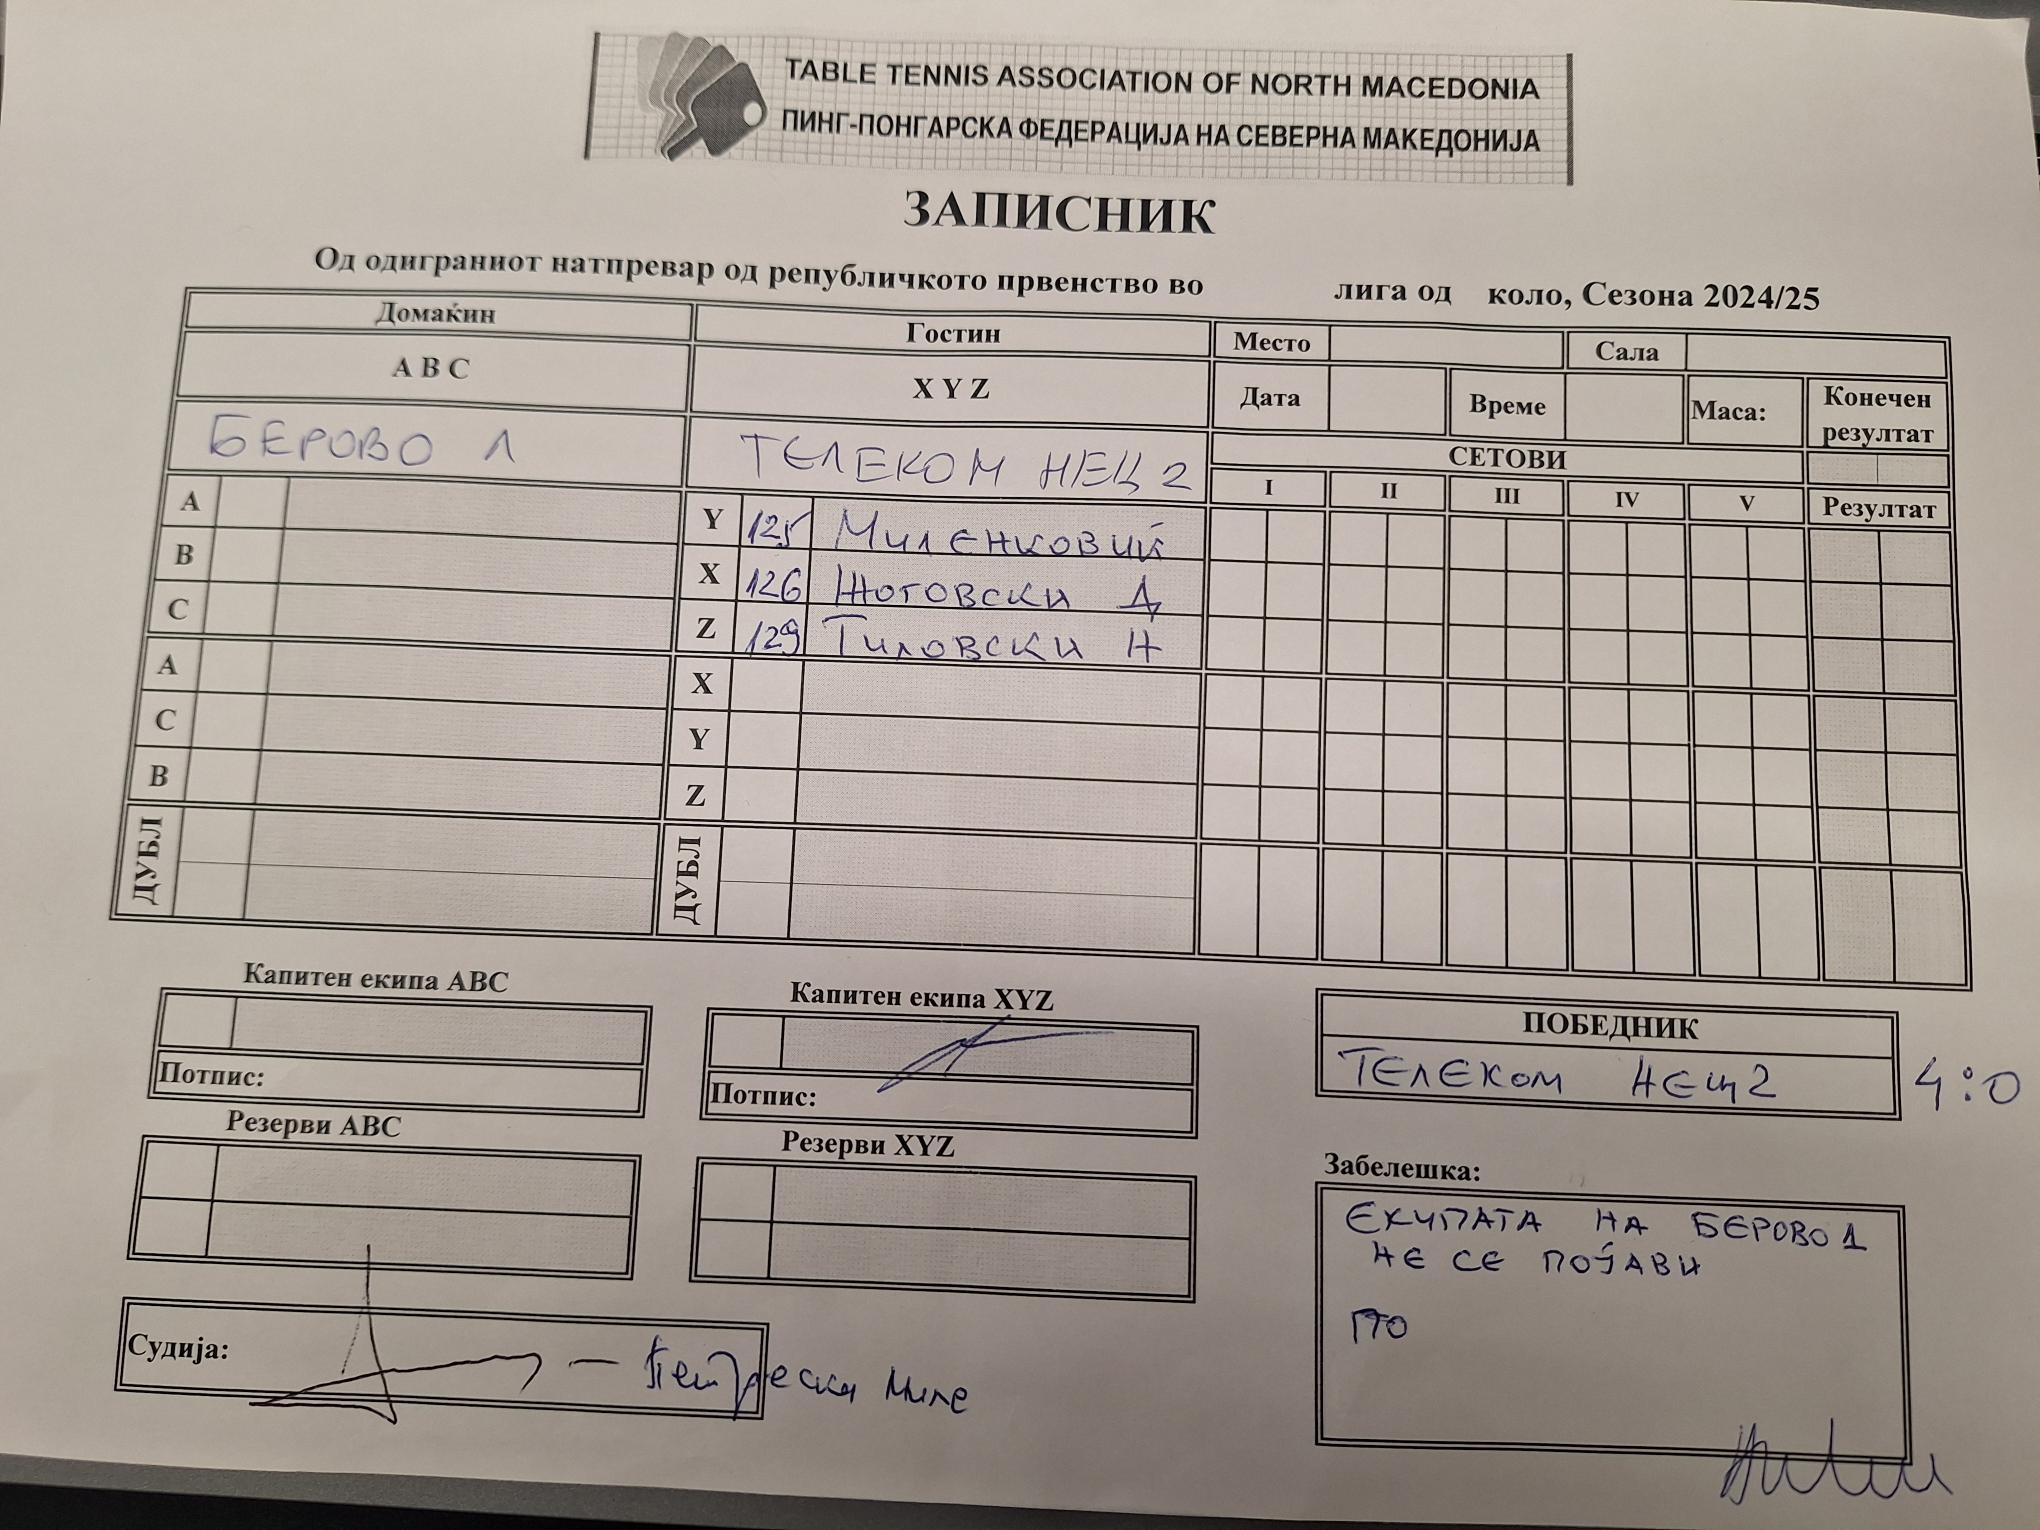 TABLE TENNIS ASSOCIATION OF NORTH MACEDONIA
ПИНГ-ПОНГАРСКА ФЕДЕРАЦИЈА НА СЕВЕРНА МАКЕДОНИЈА
ЗАПИСНИК
Од одиграниот натпревар од републичкото првенство во лига од коло, Сезона 2024/25
Домаќин Гостин Место Сала
A B C X Y Z Дата Време Маса: Конечен резултат
БЕРОВО 1 ТЕЛЕКОМ НЕЦ 2 СЕТОВИ
I II III IV V Резултат
A Y 125 Миленковиќ
B X 126 Жоговски Д
C Z 129 Тиловски Н
A X
C Y
B Z
ДУБЛ ДУБЛ
Капитен екипа ABC Капитен екипа XYZ ПОБЕДНИК
ТЕЛЕКОМ НЕЦ 2 4:0
Потпис: Потпис:
Резерви ABC Резерви XYZ Забелешка:
ЕКИПАТА НА БЕРОВО 1
НЕ СЕ ПОЈАВИ
ПТО
Судија: – Петрески Миле